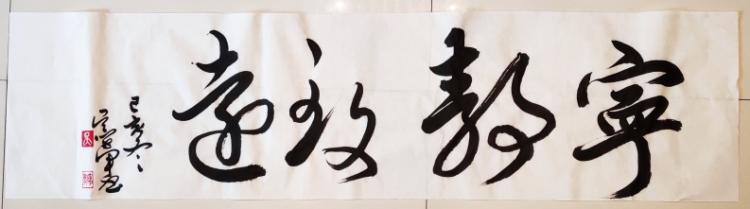 寧靜致遠
己亥冬